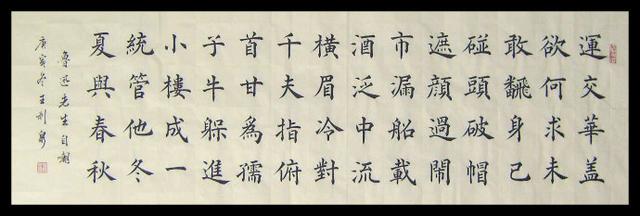 運交華盖
欲何求未
敢飜身已
碰頭破帽
遮顔過鬧
市漏船載
酒泛中流
橫眉冷對
千夫指俯
首甘爲孺
子牛躲進
小樓成一
統管他冬
夏與春秋
魯迅先生自嘲
庚寅冬王利